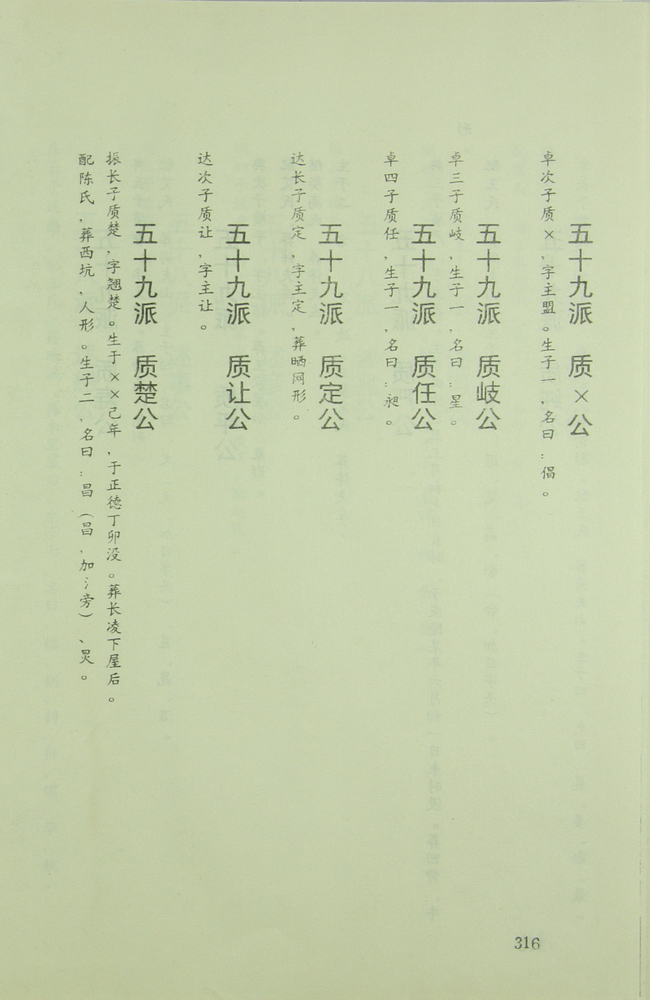 五十九派 质×公
卓次子质×,字主盟。生子一,名曰:倡。
五十九派 质岐公
卓三子质岐,生子一,名曰:星。
五十九派 质任公
卓四子质任,生子一,名曰:昶。
五十九派 质定公
达长子质定,字主定,葬晒网形。
五十九派 质让公
达次子质让,字主让。
五十九派 质楚公
振长子质楚,字翘楚。生于××己年,于正德丁卯没。葬长凌下屋后。
配陈氏,葬西坑,人形。生子二,名曰:昌(昌,加氵旁)、炅。
316